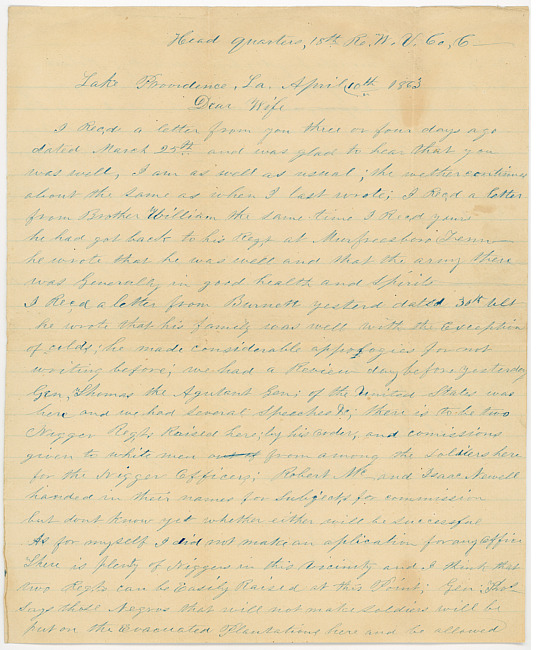 Head quarters, 18th Re, W. V. Co, C
Lake Providence, La. April 10th 1863
Dear Wife
I Recd a letter from you three or four days ago
dated March 25th and was glad to hear that you
was well, I am as well as usual; the wether continues
about the same as when I last wrote; I Recd a letter
from Brother William the same time I Recd yours
he had got back to his Regt at Murfreesboro Tenn
he wrote that he was well and that the army there
was Generally in good health and Spirits
I Recd a letter from Burnett yesterd dated 30th ult
he wrote that his family was well with the Exception
of colds; he made considerable appofogies for not
writing before; we had a Review day before yesterday
Gen, Thomas the Agutant Gen; of the United States was
here and we had several Speeches &c; there is to be two
Nigger Regts Raised here; by his order; and comissions
given to white men from among the Soldiers here
for the Nigger Officers; Robert Mc and Isaac Newell
handed in their names for Subjects for commission
but dont know yet whether either will be successful
As for myself I did not make an application for any office
There is plenty of Niggers in this vicinity and I think that
two Regts can be Easily Raised at this Point; Gen; Thos
Says those Negros that will not make soldiers will be
put on the Evacuated Plantations here and be allowed